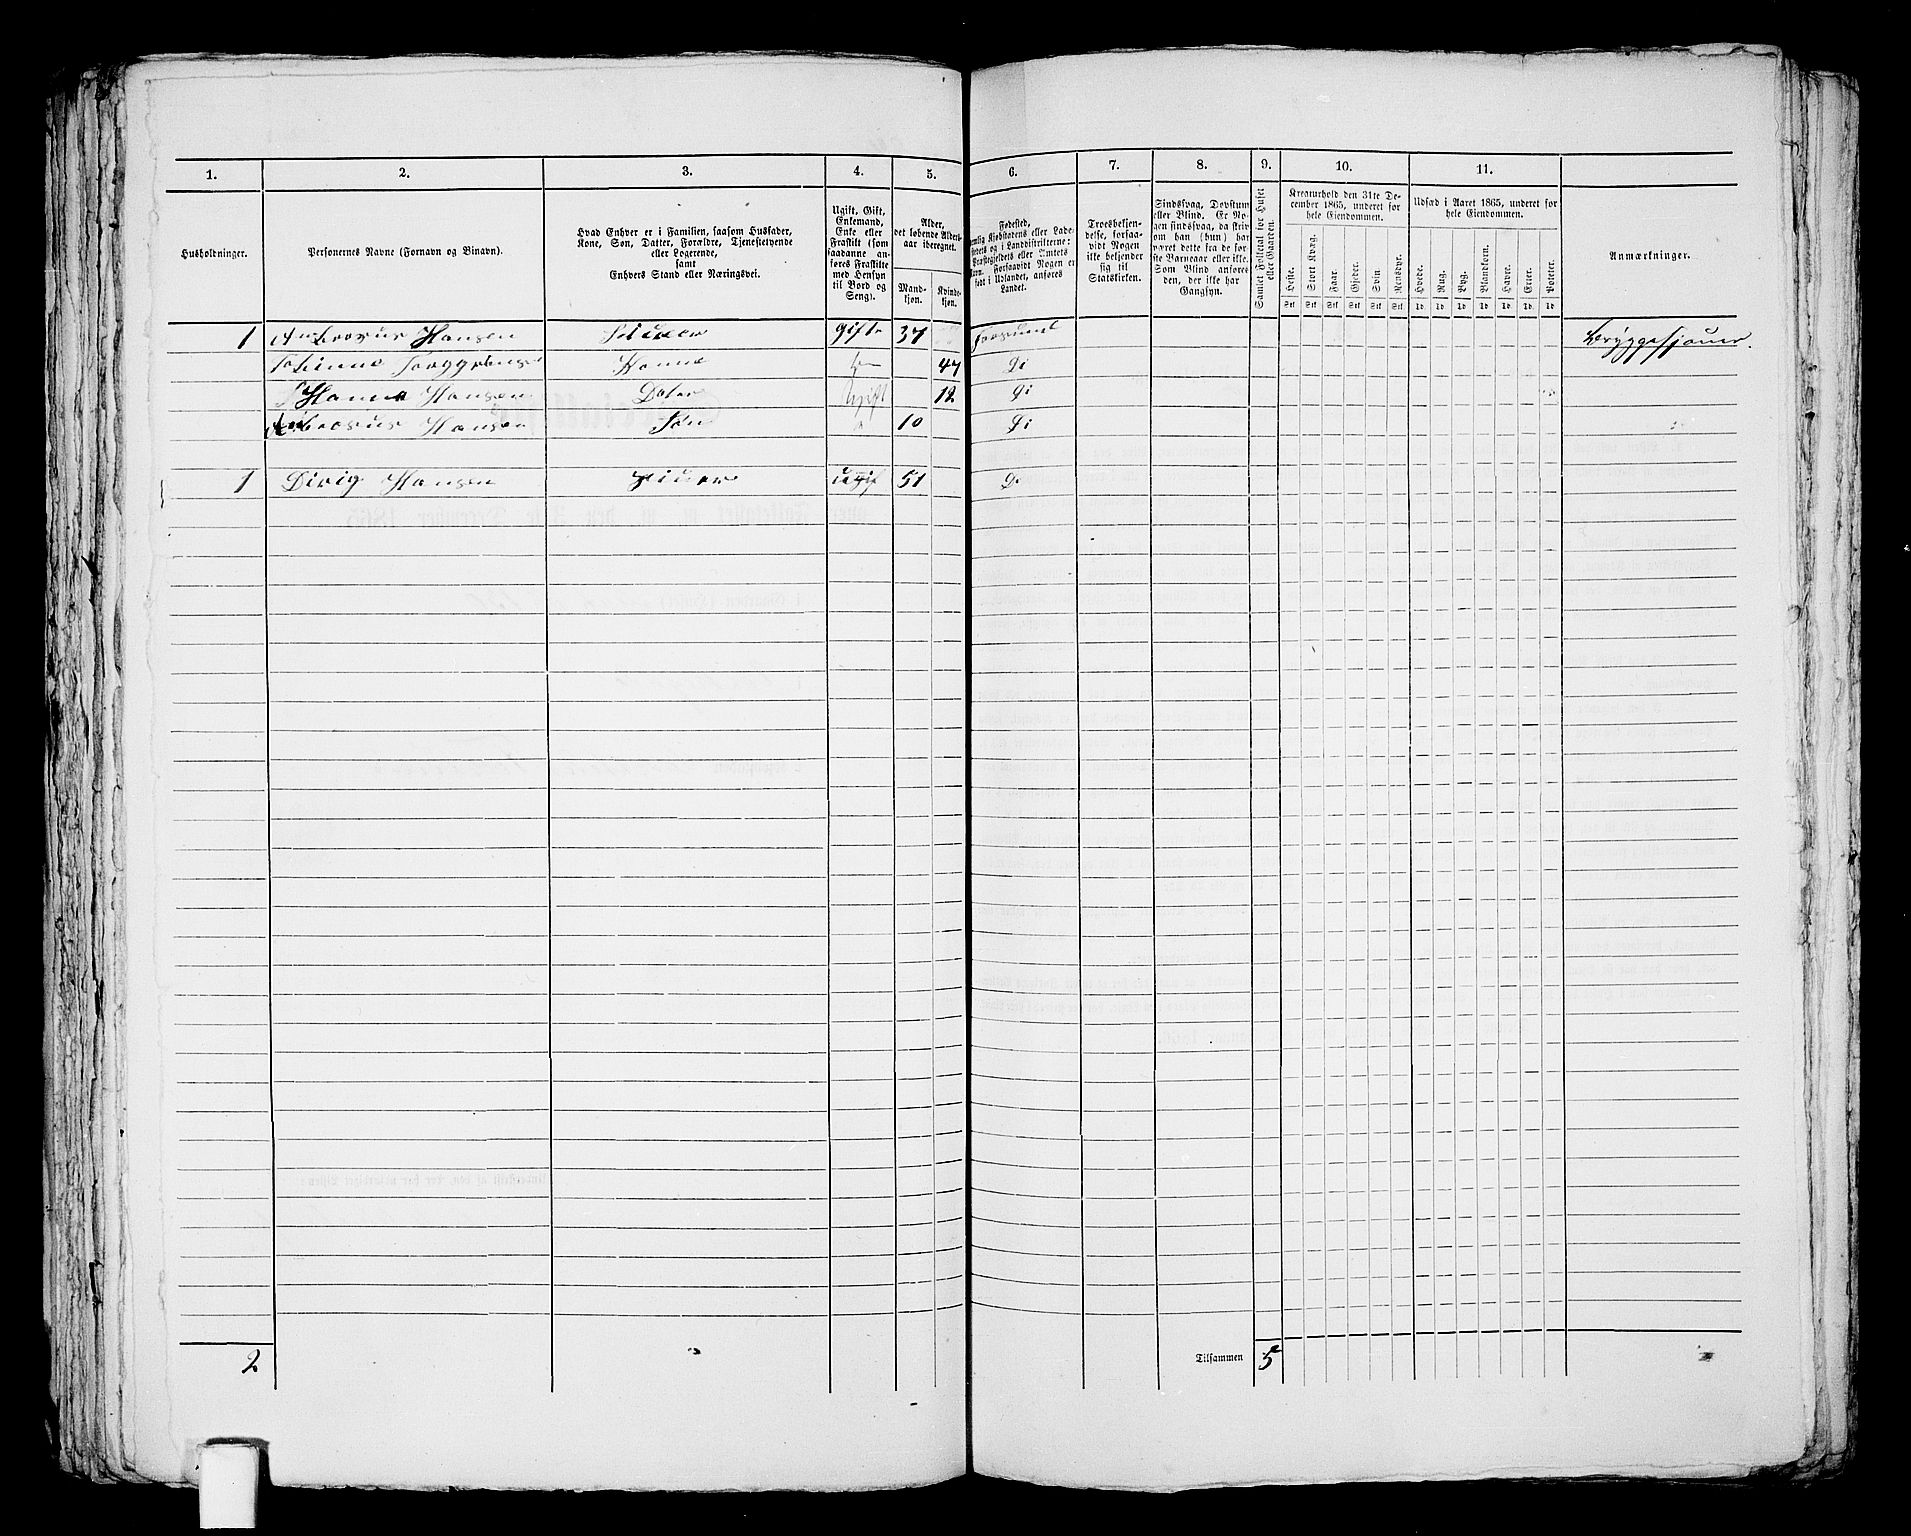 1. 2. 3. 4. 5. 6. 7. 8. 9. 10. 11.
Husholdninger.
Personernes Navne (Fornavn og Binavn).
Hvad Enhver er i Familien, saasom Husfader,
Kone, Søn, Datter, Forældre, Tjenestetyende
eller Logerende,
samt
Enhvers Stand eller Næringsvei.
Ugift, Gift,
Enkemand,
Enke eller
Fraskilt (som
saadanne an-
føres Fraskilte
med Hensyn
til Bord og
Seng).
Alder,
det løbende Alders-
aar iberegnet.
Mand-
kjøn.
Kvinde-
kjøn.
Fødested,
nemlig Kjøbstadens eller Lade-
stedets og i Landdistrikterne:
Præstegjeldets eller Amtets
Navn. Forsaavidt Nogen er
født i Udlandet, anføres
Landet.
Troesbekjen-
delse, forsaa-
vidt Nogen
ikke bekjender
sig til
Statskirken.
Sindssvag, Døvstum
eller Blind. Er No-
gen sindssvag, da skriv
om han (hun) har
været dette fra de før-
ste Barneaar eller ikke.
Som Blind anføres
den, der ikke har
Gangsyn.
Samlet Folketal for Huset
eller Gaarden.
Kreaturhold den 31te De-
cember 1865, underet for
hele Eiendommen.
Heste. Stort Kvæg. Faar. Gjeder. Svin. Rensdyr.
Stk Stk Stk Stk Stk Stk
Udsæd i Aaret 1865, underet for
hele Eiendommen.
Hvede. Rug. Byg. Blandkorn. Havre. Erter. Poteter.
Td. Td. Td. Td. Td. Td. Td.
Anmærkninger.
1 Hansen Gift 37 Bryggesjouer.
Konne 47 Di
Hanna Hansen Doter Ugift 12 Di
Hansen Søn 10 Di
1 Hansen ugif 51 D
2 Tilsammen 5